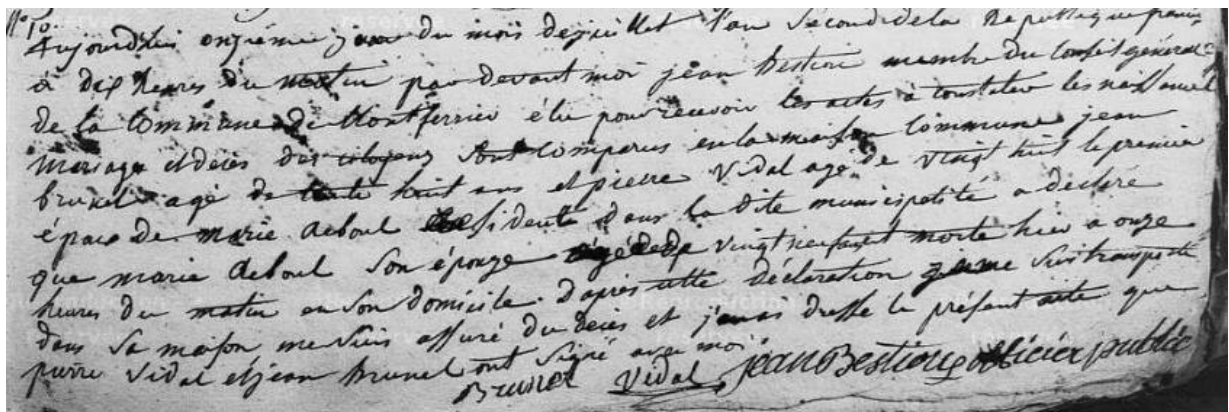 n° 10
Aujourdhui onzième jour du mois de juillet l'an second de la Republique franc
à dix heures du matin par devant moi jean Bestion membre du Conseil général
de la Commune de Montferrier élu pour recevoir les actes à constater les naissances
mariages et deces des citoyens sont comparus en la maison Commune jean
brunel agé de trente huit ans et pierre Vidal agé de vingt huit le premier
époux de marie Reboul residente dans la dite municipalité a declaré
que marie Reboul son épouze agée de vingt neuf est morte hier a onze
heures du matin en son domicile. d'apres cette déclaration je me suis transporté
dans sa maison me suis assuré du deces et j'en ai dressé le présent acte que
pierre Vidal et jean Brunel ont signé avec moi
Brunel Vidal jean Bestion officier public